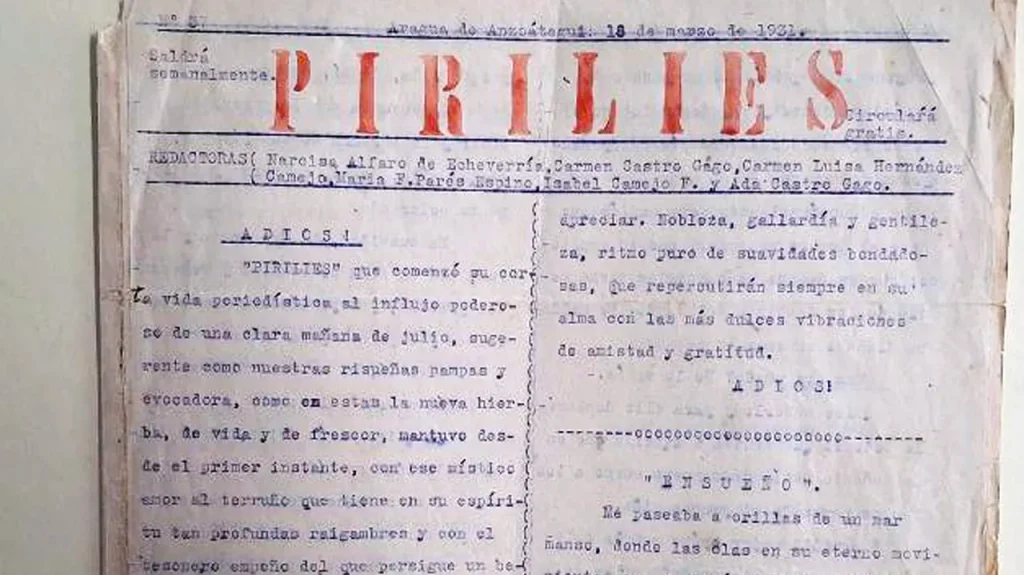 Nº 37 Aragua de Anzoátegui: 18 de marzo de 1931.
Saldrá
semanalmente.
PIRILIES
Circulará
gratis.
REDACTORAS( Narcisa Alfaro de Echeverría,Carmen Castro Gago,Carmen Luisa Hernández
( Camejo,Maria F.Parés Espino,Isabel Camejo F. y Ada Castro Gago.
A D I O S !
"PIRILIES" que comenzó su cor-
ta vida periodística al influjo podero-
so de una clara mañana de julio, suge-
rente como nuestras risueñas pampas y
evocadora, como en estas la nueva hier-
ba, de vida y de frescor, mantuvo des-
de el primer instante, con ese místico
amor al terruño que tiene en su espíri-
tu tan profundas raigambres y con el
tesonero empeño del que persigue un be-
apreciar. Nobleza, gallardía y gentile-
za, ritmo puro de suavidades bondado-
sas, que repercutirán siempre en su
alma con las más dulces vibraciones
de amistad y gratitud.
A D I O S!
--------oooooooooooooooooooooo--------
"E N S U E Ñ O".
Me paseaba a orillas de un mar
manso, donde las ólas en su eterno movi-